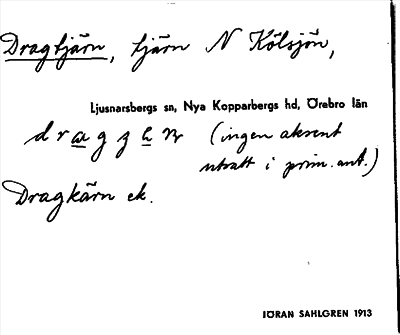 Dragtjärn, tjärn N Kölsjön,
Ljusnarsbergs sn, Nya Kopparbergs hd, Örebro län
(ingen akcent
utsatt i prim. ant.)
Dragkärn ek.
JÖRAN SAHLGREN 1913